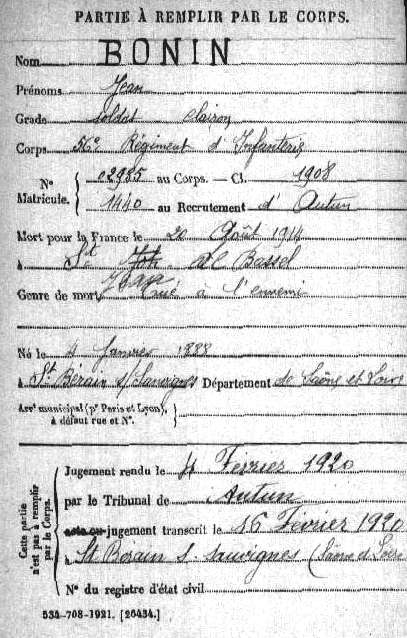 PARTIE À REMPLIR PAR LE CORPS.
Nom BONIN
Prénoms Jean
Grade Soldat Clairon
Corps 56e Régiment d'Infanterie
Nº Matricule. { 02985 au Corps. — Cl. 1908
1440 au Recrutement d'Autun
Mort pour la France le 20 Août 1914
à St Jean de Bassel
Genre de mort Tué à l'ennemi
Né le 4 Janvier 1888
à St Bérain s/Sanvignes Département de Saône et Loire
Arrt municipal (pr Paris et Lyon), à défaut rue et Nº. }
Cette partie n'est pas à remplir par le Corps. {
Jugement rendu le 4 Février 1920
par le Tribunal de Autun
acte ou jugement transcrit le 16 Février 1920
à St Berain s. Sauvignes (Saône et Loire
Nº du registre d'état civil
534-708-1921. [26434.]